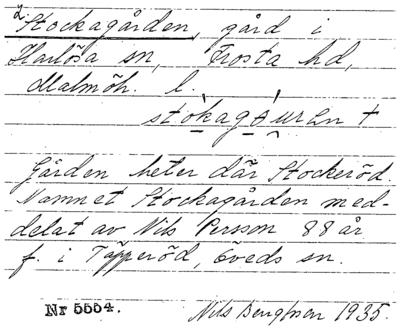 2 Stockagården, gård i
Harlösa sn, Frosta hd,
Malmöh. l.
Gården heter där Stockeröd.
Namnet Stockagården med-
delat av Nils Persson 88 år
f. i Täpperöd, Öveds sn.
Nr 5554. Nils Bengtsson 1935.